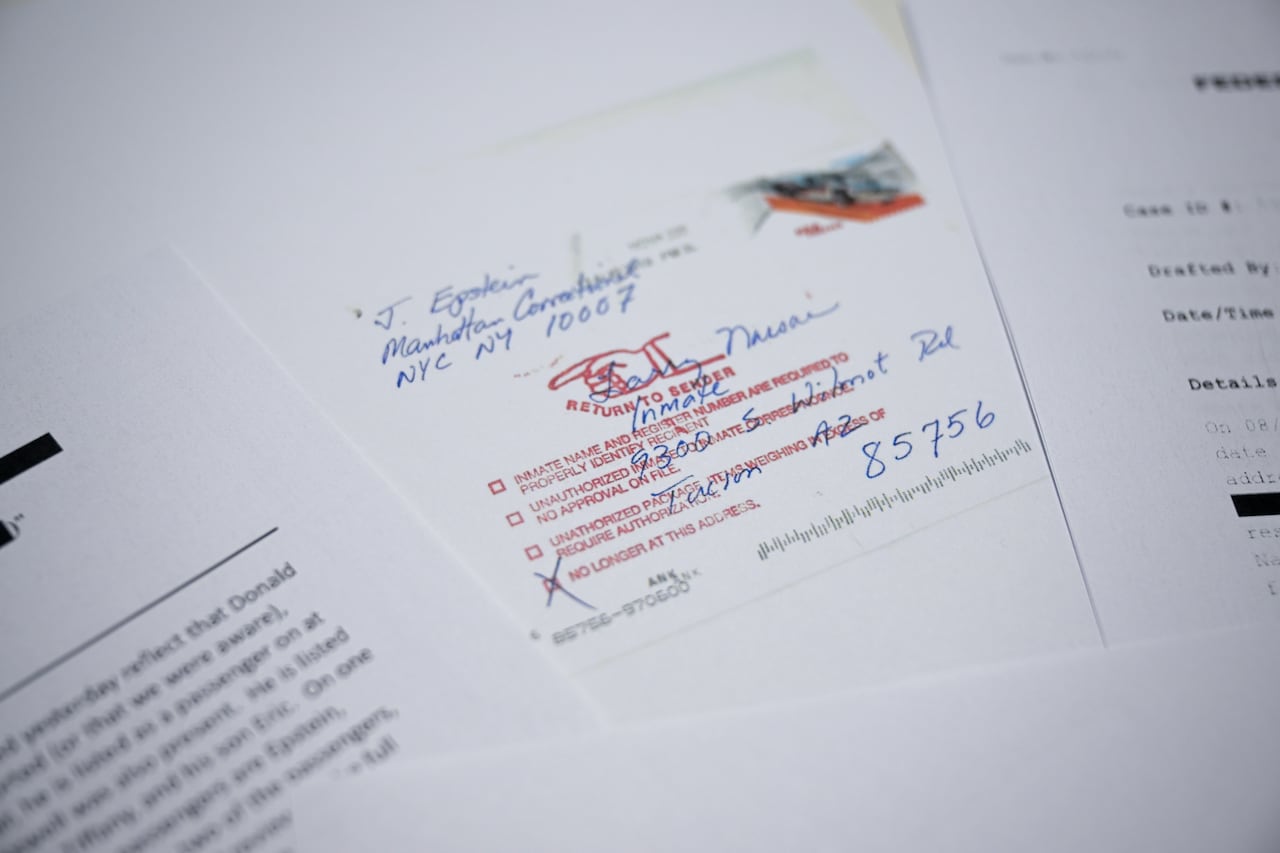 J. Epstein
Manhattan Correctional
NYC NY 10007
Larry Nassar
RETURN TO SENDER
Inmate
9300 S Wilmot Rd
Tucson AZ 85756
INMATE NAME AND REGISTER NUMBER ARE REQUIRED TO
PROPERLY IDENTIFY RECIPIENT
UNAUTHORIZED INMATE TO INMATE CORRESPONDENCE
NO APPROVAL ON FILE.
UNATHORIZED PACKAGE. ITEMS WEIGHING IN EXCESS OF
REQUIRE AUTHORIZATION.
X NO LONGER AT THIS ADDRESS.
ANK
85756-970600
yesterday reflect that Donald
(or that we were aware),
he is listed as a passenger on at
was also present. He is listed
Tiffany, and his son Eric. On one
passengers are Epstein,
two of the passengers,
full
FEDE
Case ID #:
Drafted By:
Date/Time
Details
On 08/
date
addre
res
Na